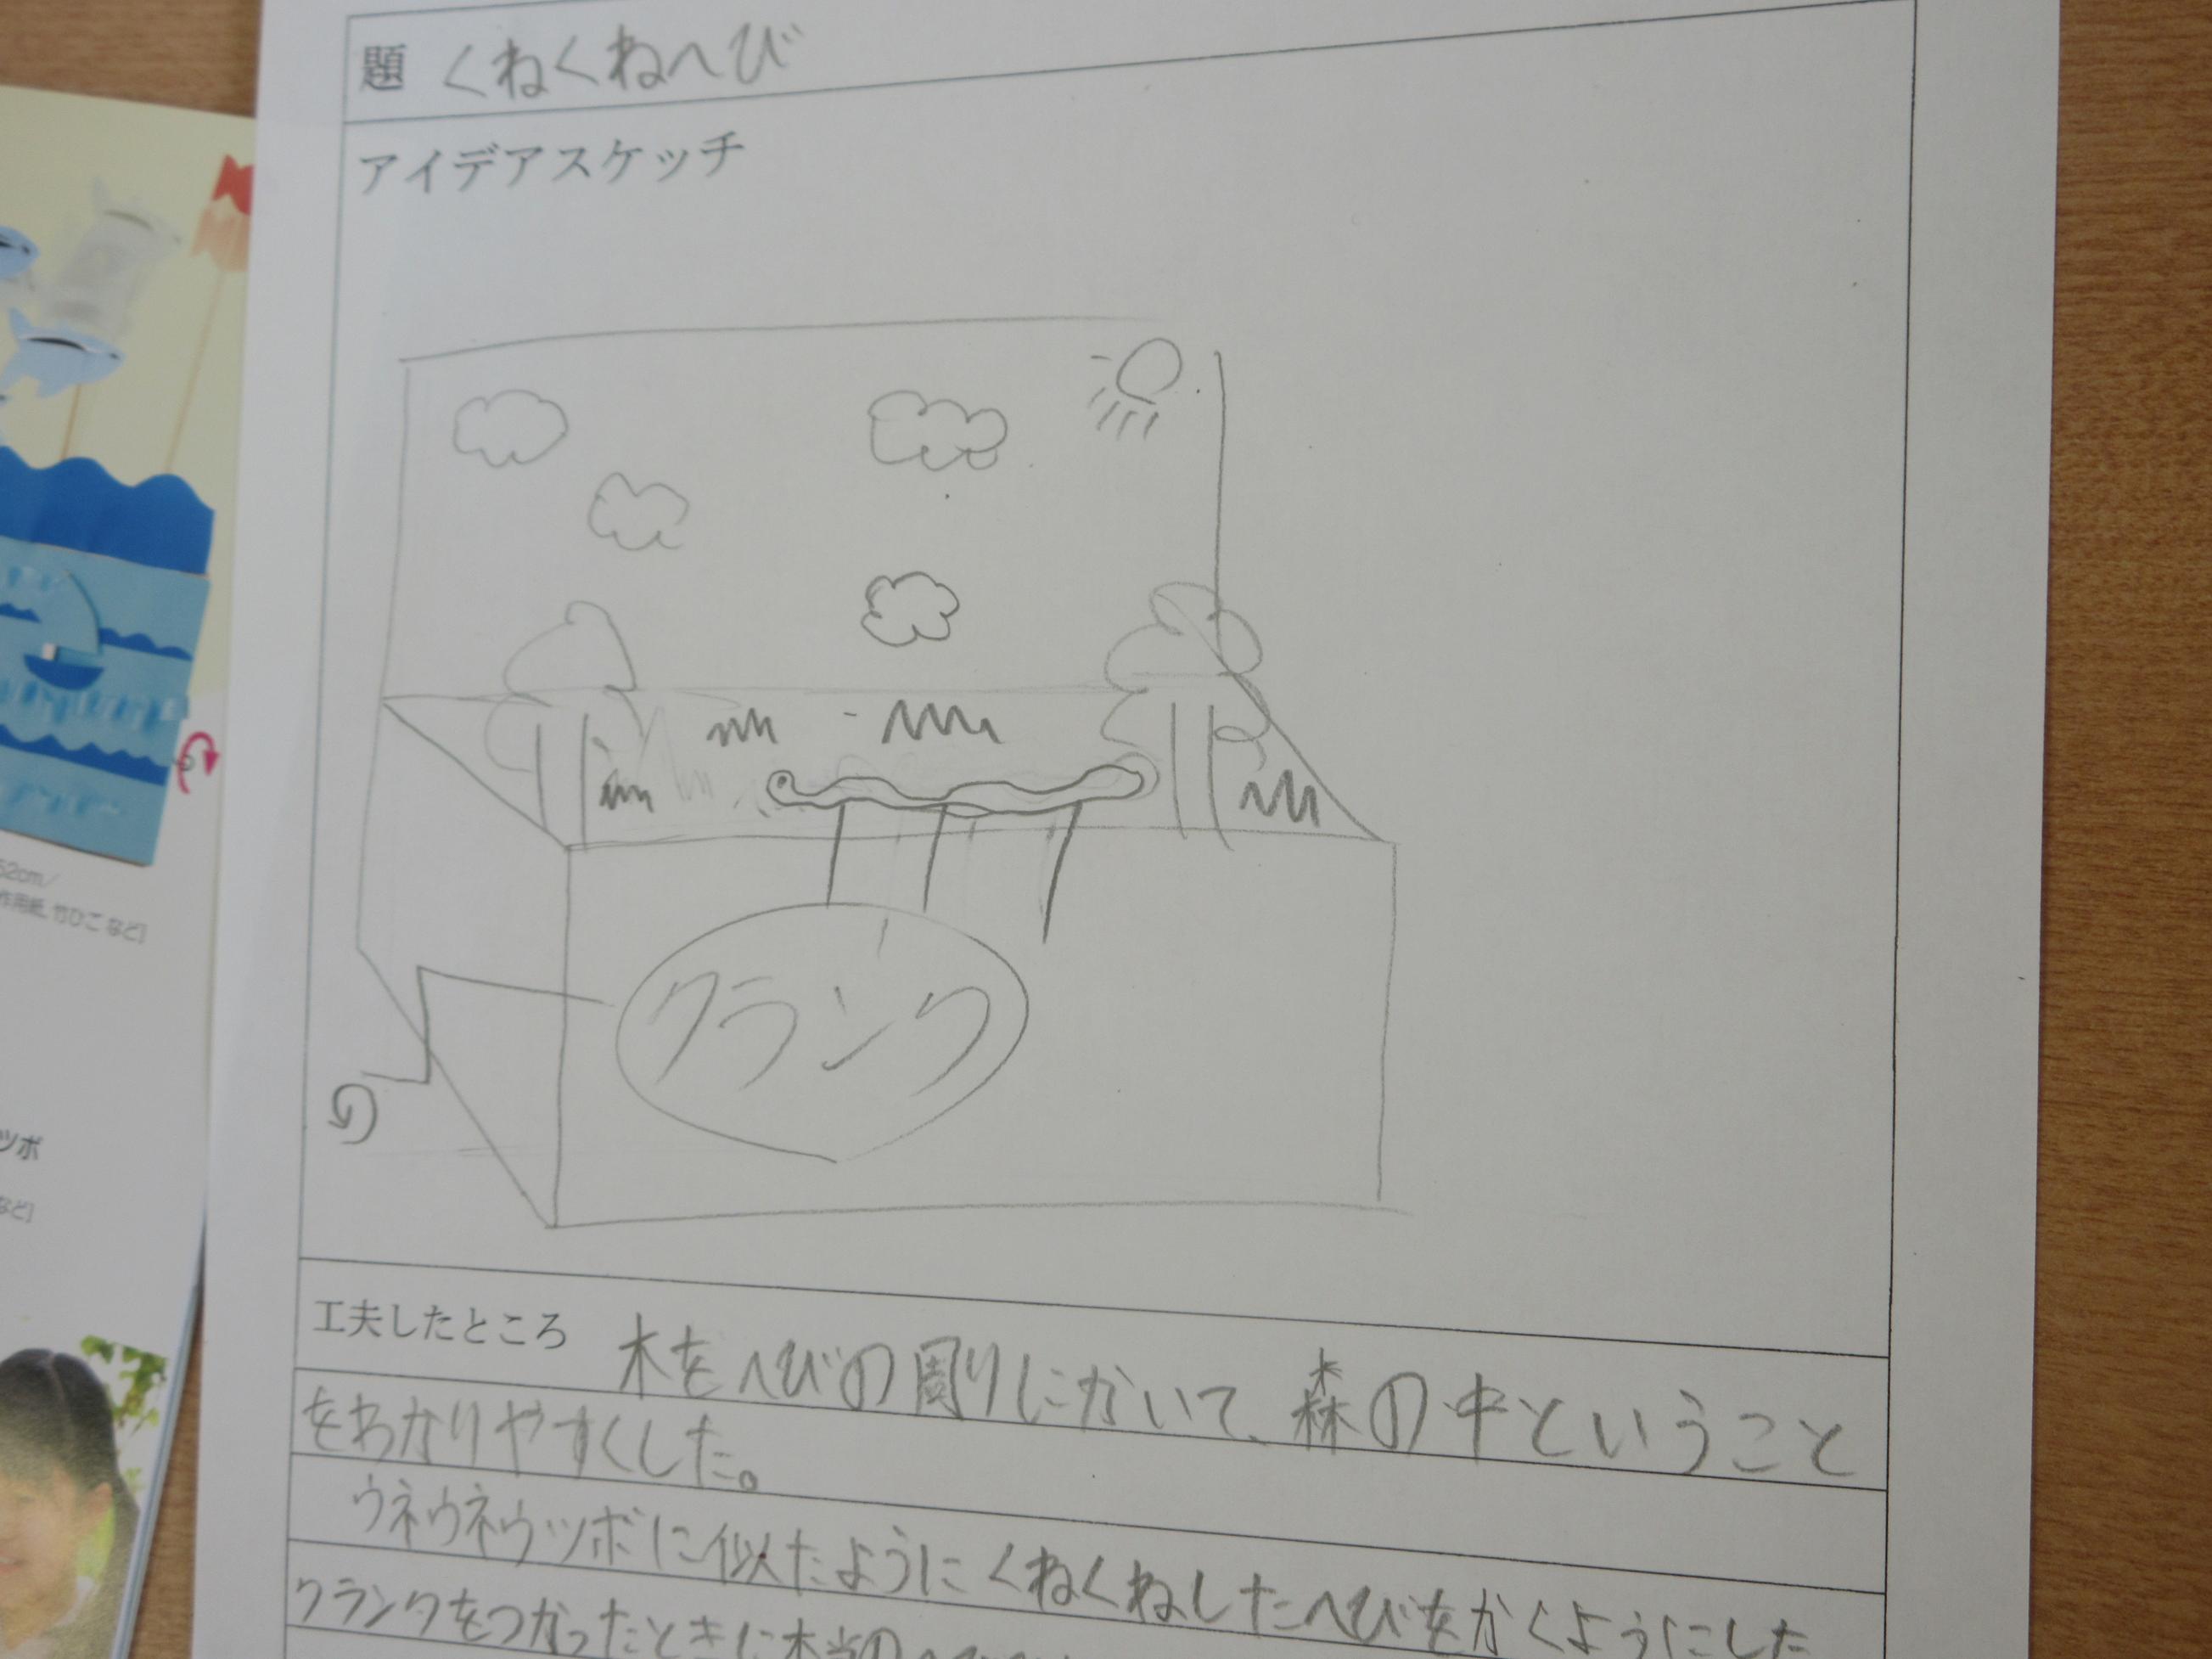 題 くねくねへび
アイデアスケッチ
クランク
工夫したところ 木をへびの周りにかいて、森の中ということ
をわかりやすくした。
ウネウネウツボに似たようにくねくねしたへびをかくようにした
クランクをつかったときに本当の
52cm/
作用紙、竹ひごなど]
ツボ
など]